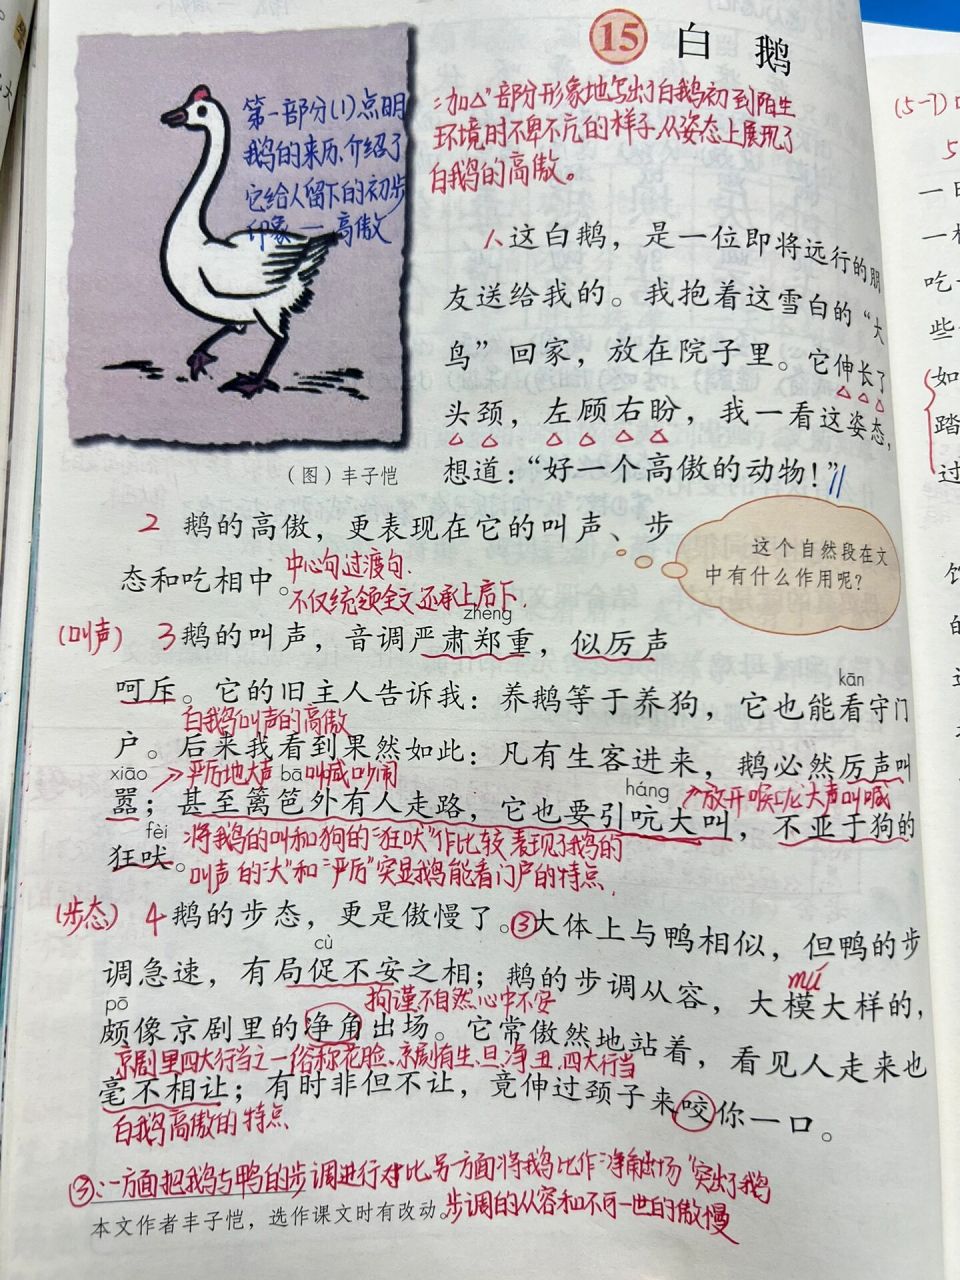 15 白鹅
第一部分(1)点明
鹅的来历、介绍了
它给人留下的初步
印象——高傲
“加△”部分形象地写出了白鹅初到陌生
环境时不卑不亢的样子,从姿态上展现了
白鹅的高傲。
1 这白鹅，是一位即将远行的朋
友送给我的。我抱着这雪白的“大
鸟”回家，放在院子里。它伸长了
头颈，左顾右盼，我一看这姿态，
想道：“好一个高傲的动物！”
（图）丰子恺
2 鹅的高傲，更表现在它的叫声、步
态和吃相中。
中心句过渡句.
不仅统领全文还承上启下.
这个自然段在文
中有什么作用呢？
(叫声) 3 鹅的叫声，音调严肃郑重，似厉声
zhèng
呵斥。它的旧主人告诉我：养鹅等于养狗，它也能看守门
kān
白鹅叫声的高傲
户。后来我看到果然如此：凡有生客进来，鹅必然厉声叫
严厉地大声 叫喊吵闹
xiāo bā háng
放开喉咙大声叫喊
嚣；甚至篱笆外有人走路，它也要引吭大叫，不亚于狗的
fèi
狂吠。
将我鹅的叫和狗的“狂吠”作比较 表现了鹅的
叫声的“大”和“严厉”突显鹅能看门户的特点.
(步态) 4 鹅的步态，更是傲慢了。③大体上与鸭相似，但鸭的步
cù
调急速，有局促不安之相；鹅的步调从容，大模大样的，
mú
拘谨不自然.心中不安
pō
颇像京剧里的净角出场。它常傲然地站着，看见人走来也
京剧里四大行当之一俗称花脸、京剧有生、旦、净、丑、四大行当
毫不相让；有时非但不让，竟伸过颈子来咬你一口。
白鹅高傲的特点
③:一方面把鹅与鸭的步调进行对比另一方面将鹅比作“净角出场”突出了鹅
步调的从容和不可一世的傲慢
本文作者丰子恺，选作课文时有改动。
(5-7)
5
一
吃
些
如
踏
过